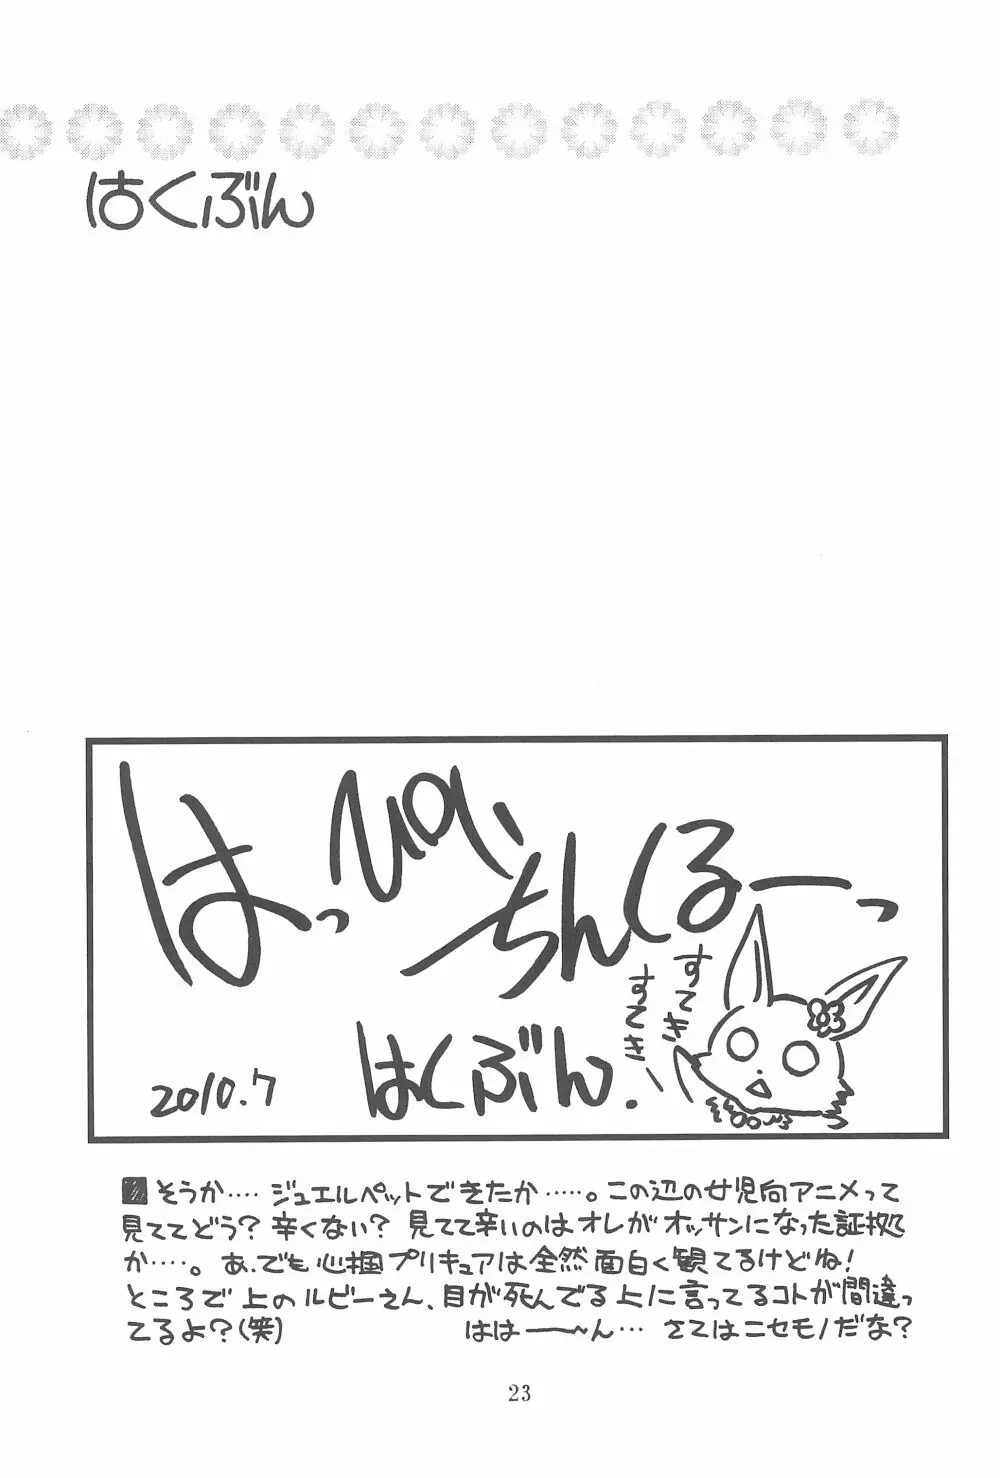 はくぶん
はっぴぃ
ちんくるーっ
すてき
すてき
はくぶん.
2010.7
■そうか‥‥ ジュエルペットできたか‥‥‥。この辺の女児向アニメって
見ててどう?辛くない? 見てて辛いのはオレがオッサンになった証拠
か‥‥。あ、でも心掴プリキュアは全然面白く観てるけどね!
ところで上のルビーさん、目が死んでる上に言ってるコトが間違っ
てるよ?(笑) ははーーん… さてはニセモノだな?
23